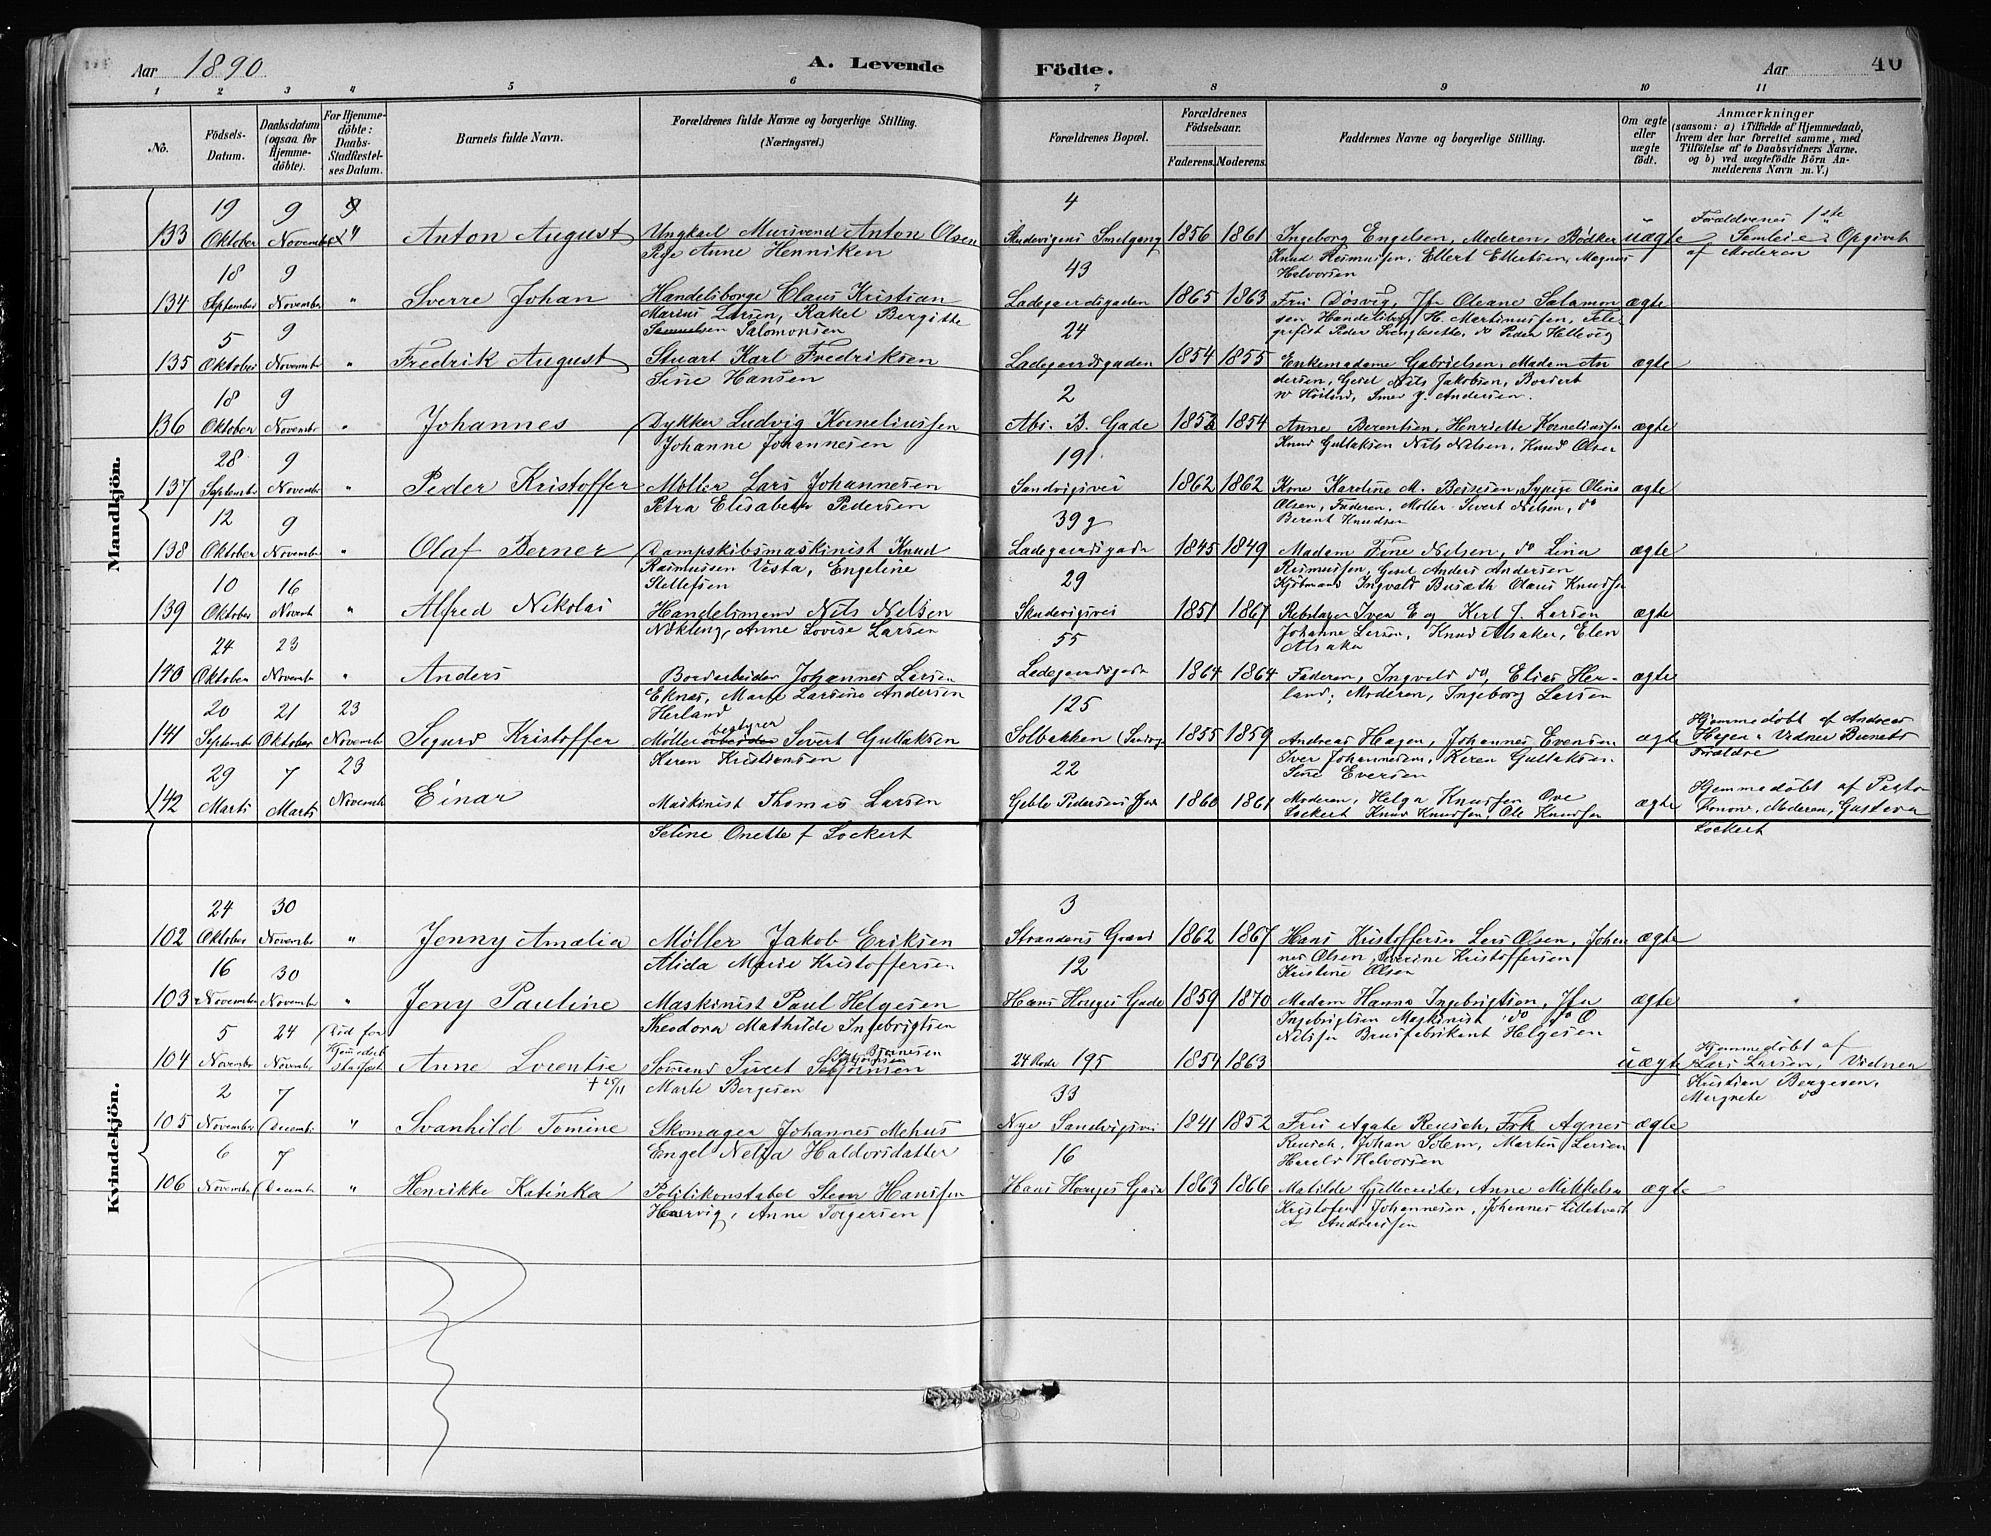 Aar 1890 A. Levende Födte. Aar 40
1 2 3 4 5 6 7 8 9 10 11
No. Födsels-Datum. Daabsdatum (ogsaa for Hjemmedöbte). For Hjemmedöbte: Daabs-Stadfæstelses Datum. Barnets fulde Navn. Forældrenes fulde Navne og borgerlige Stilling. (Næringsvei.) Forældrenes Bopæl. Forældrenes Födselsaar. Faderens. Moderens. Faddernes Navne og borgerlige Stilling. Om ægte eller uægte födt. Anmærkninger (saasom: a) i Tilfælde af Hjemmedaab, hvem der har forrettet samme, med Tilföielse af to Daabsvidners Navne. og b) ved uægtefödte Börn Anmelderens Navn m. V.)
Mandkjön.
19 9 4
133 Oktober November " Anton August Ungkarl Mursvend Anton Olsen Skudevigens Smalgang 1856 1861 Ingeborg Engelsen, Moderen, Bødker uægte Forældrenes 1ste Samleie. Opgivet af Moderen
Pige Anne Henniken Knud Rasmussen, Ellert Ellertsen, Magnus Halvorsen
18 9 43
134 September November " Sverre Johan Handelsborger Claus Kristian Ladegaardsgaden 1865 1863 Fru Døsvig, Jfr Oleane Salamon ægte
Marius Larsen, Rakel Bergitte sen Handelsborg H. Martinussen, Tele
Samuelsen Salomonsen grafist Peder Svenglesette, do Peder Hellevig
5 9 24
135 Oktober November " Fredrik August Stuart Karl Fredriksen Ladegaardsgaden 1854 1855 Enkemadame Gabrielsen, Madam An ægte
Sine Hansen dersen, Gesel Nils Jakobsen, Andersen.
18 9 2
136 Oktober November " Johannes Dykker Ludvig Korneliussen Abs. B. Gade 1852 1854 Anne Berentsen, Henriette Korneliussen ægte
Johanne Johannesen Knud Gullaksen Nils Nilsen, Knud Olsen
28 9 191
137 September November " Peder Kristoffer Møller Lars Johannesen Sandvigsvei 1862 1862 Kone Karoline M. Sypige Oline ægte
Petra Elisabeth Pedersen Olsen, Faderen, Møller Sivert Nielsen, do
Berent Knudsen
12 9 39 g
138 Oktober November " Olaf Berner Dampskibsmaskinist Knud Ladegaardsgade 1845 1849 Madam Tine Nilsen, do Lina ægte
Rasmussen Vesta, Engeline Rasmussen, Gesel Anders Andersen
Stellefsen Ingvald Olaus Knudsen
10 16 29
139 Oktober Novemb " Alfred Nikolai Handelsmand Nils Nelsen Skudevigsvei 1851 1867 Rebslager Iver E og Karl J. Larsen ægte
Anne Lovise Larsen Johanne Larsen, Knud Alsaker, Elen
Alsaker
24 23 55
140 Oktober November " Anders Bordarbeider Johannes Larsen Ladegaardsgade 1864 1864 Faderen, Ingvald do, Elias Her- ægte
Eknæs, Marte Larsine Andersen land; Moderen, Ingeborg Larsen
Herland
20 21 23 125
141 September Oktober November Sigurd Kristoffer Møllerarbeider bestyrer Sivert Gullaksen Solbakken (Sandvig 1855 1859 Andreas Hagen, Johannes Evensen ægte Hjemmedøbt af Andreas
Karen Kristiansen Iver Johannesen, Karen Gullaksen Hagen. Vidner Barnets
Sine Eversen Forældre
29 7 23 22
142 Marts Marts November Einar Maskinist Thomas Larsen Geble Pedersens Gade 1860 1861 Moderen, Helga Knudsen Ove ægte Hjemmedøbt af Pastor
Seline Onette f Lockert Lockert Knud Knudsen, Ole Knudsen Konow, Moderen, Gustava
Lockert
Kvindekjön.
24 30 3
102 Oktober November " Jenny Amalia Møller Jakob Eriksen Strandens Grænd 1862 1867 Hans Kristoffersen Lars Olsen, Johan ægte
Alida Marie Kristoffersen nes Olsen, Severine Kristoffersen
Kristine Olsen
16 30 12
103 November November " Jeny Pauline Maskinist Paul Helgesen Hans Hauges Gade 1859 1870 Madam Hanna Ingebrigtsen, Jfr ægte
Theodora Mathilde Ingebrigtsen Ingebrigtsen Maskinist do O
Nilssen Brusfabrikant Helgesen
5 24 (Død før
104 November November Hjemmedaab stadfæst Anne Lorentse † 25/11 Sømand Sivert Bjørnesen 24 Rode 195 1854 1863 uægte Hjemmedøbt af
Marte Bergesen Lars Larsen, Vidner
Kristian Bergesen,
Margrete do
2 7 33
105 November Decemb " Svanhild Tomine Skomager Johannes Mehus Nye Sandvigsvei 1841 1852 Fru Agate Reusch, Frk Agnes ægte
Engel Nelsa Haldorsdatter Reusch, Johan Solem, Martin Larsen
Harald Halvorsen
6 7 16
106 November Decemb " Henrikke Katinka Politikonstabel Steen Hanssen Hans Hauges Gade 1863 1866 Matilde Gjelleveite, Anne Mikkelsen ægte
Haarvig, Anne Torgersen Kristofer Johannesen, Johannes Lilletvedt
A Andreassen